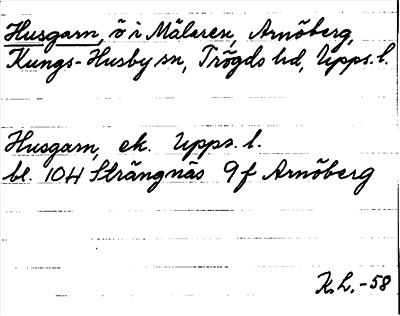 Husgarn, ö i Mälaren, Arnöberg,
Kungs-Husby sn, Trögds hd, Upps. l.
Husgarn, ek. Upps. l.
bl. 10H Strängnäs 9f Arnöberg
K.L. -58